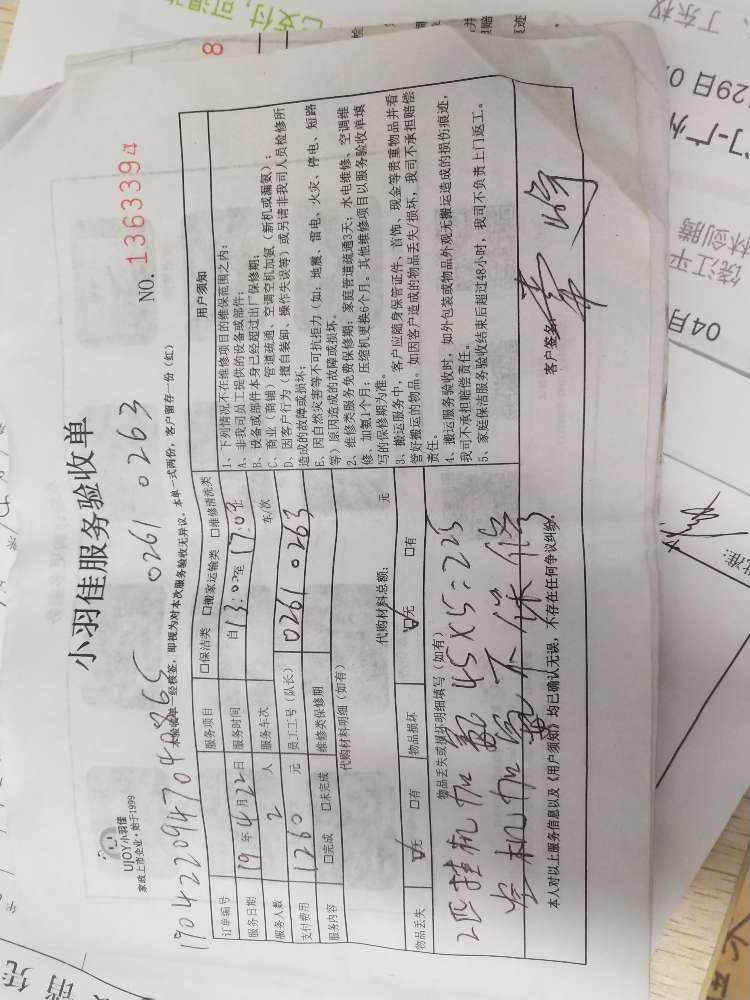 小羽佳服务验收单
UJOY小羽佳
家政上市企业·始于1999
NO. 1363394
1904220947040865 0261 0263
本验收单一经核签，即视为对本次服务验收无异议。本单一式两份，客户留存一份（红）
订单编号
服务项目 □保洁类 □搬家运输类 □维修清洗类
服务日期 19年4月22日 服务时间 自13:00至17:03止
服务人数 2 人 服务车次 车/次
支付费用 1260 元 员工工号（队长） 0261 0263
服务内容 □完成 □未完成 维修类保修期
代购材料明细（如有）
代购材料总额： 元
物品丢失 ☑无 □有 物品损坏 ☑无 □有
物品丢失或损坏明细填写（如有）
2匹挂机加氟 45X5=225
空机加氟不保修
用户须知
1、下列情况不在维修项目的维保范围之内：
A、非我司员工提供的设备或部件；
B、设备或部件本身已经超过出厂保修期；
C、商业（商铺）管道疏通、空调空机加氨（新机或漏氨）；
D、因客户行为（擅自装卸、操作失误等）或另请非我司人员检修所
造成的故障或损坏；
E、因自然灾害等不可抗拒力（如：地震、雷电、火灾、停电、短路
等）原因造成的故障或损坏。
2、维修类服务免费保修期：家庭管道疏通3天；水电维修、空调维
修、加氨1个月；压缩机更换6个月。其他维修项目以服务验收单填
写的保修期为准。
3、搬运服务中，客户应随身保管证件、首饰、现金等贵重物品并看
管好搬运的物品。如因客户造成的物品丢失/损坏，我司不承担赔偿
责任。
4、搬运服务验收时，如外包装或物品外观无搬运造成的损伤痕迹，
我司不承担赔偿责任。
5、家庭保洁服务验收结束后超过48小时，我司不负责上门返工。
本人对以上服务信息以及《用户须知》均已确认无误，不存在任何争议纠纷。
客户签名：
8
已支付，可退
丁东权
29日 0
门-广州
林剑腾
饶江平
04月
批准：